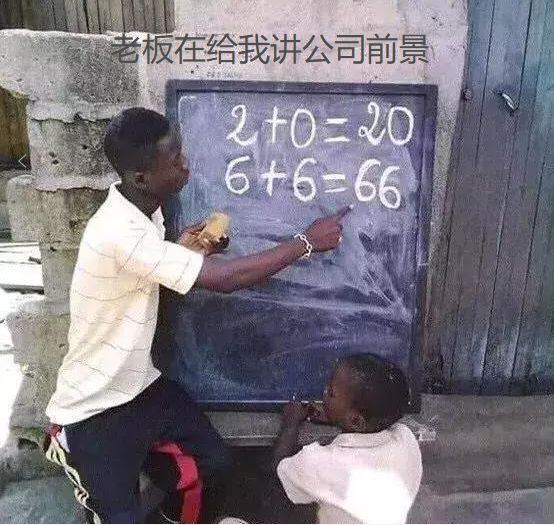 老板在给我讲公司前景
2+0=20
6+6=66